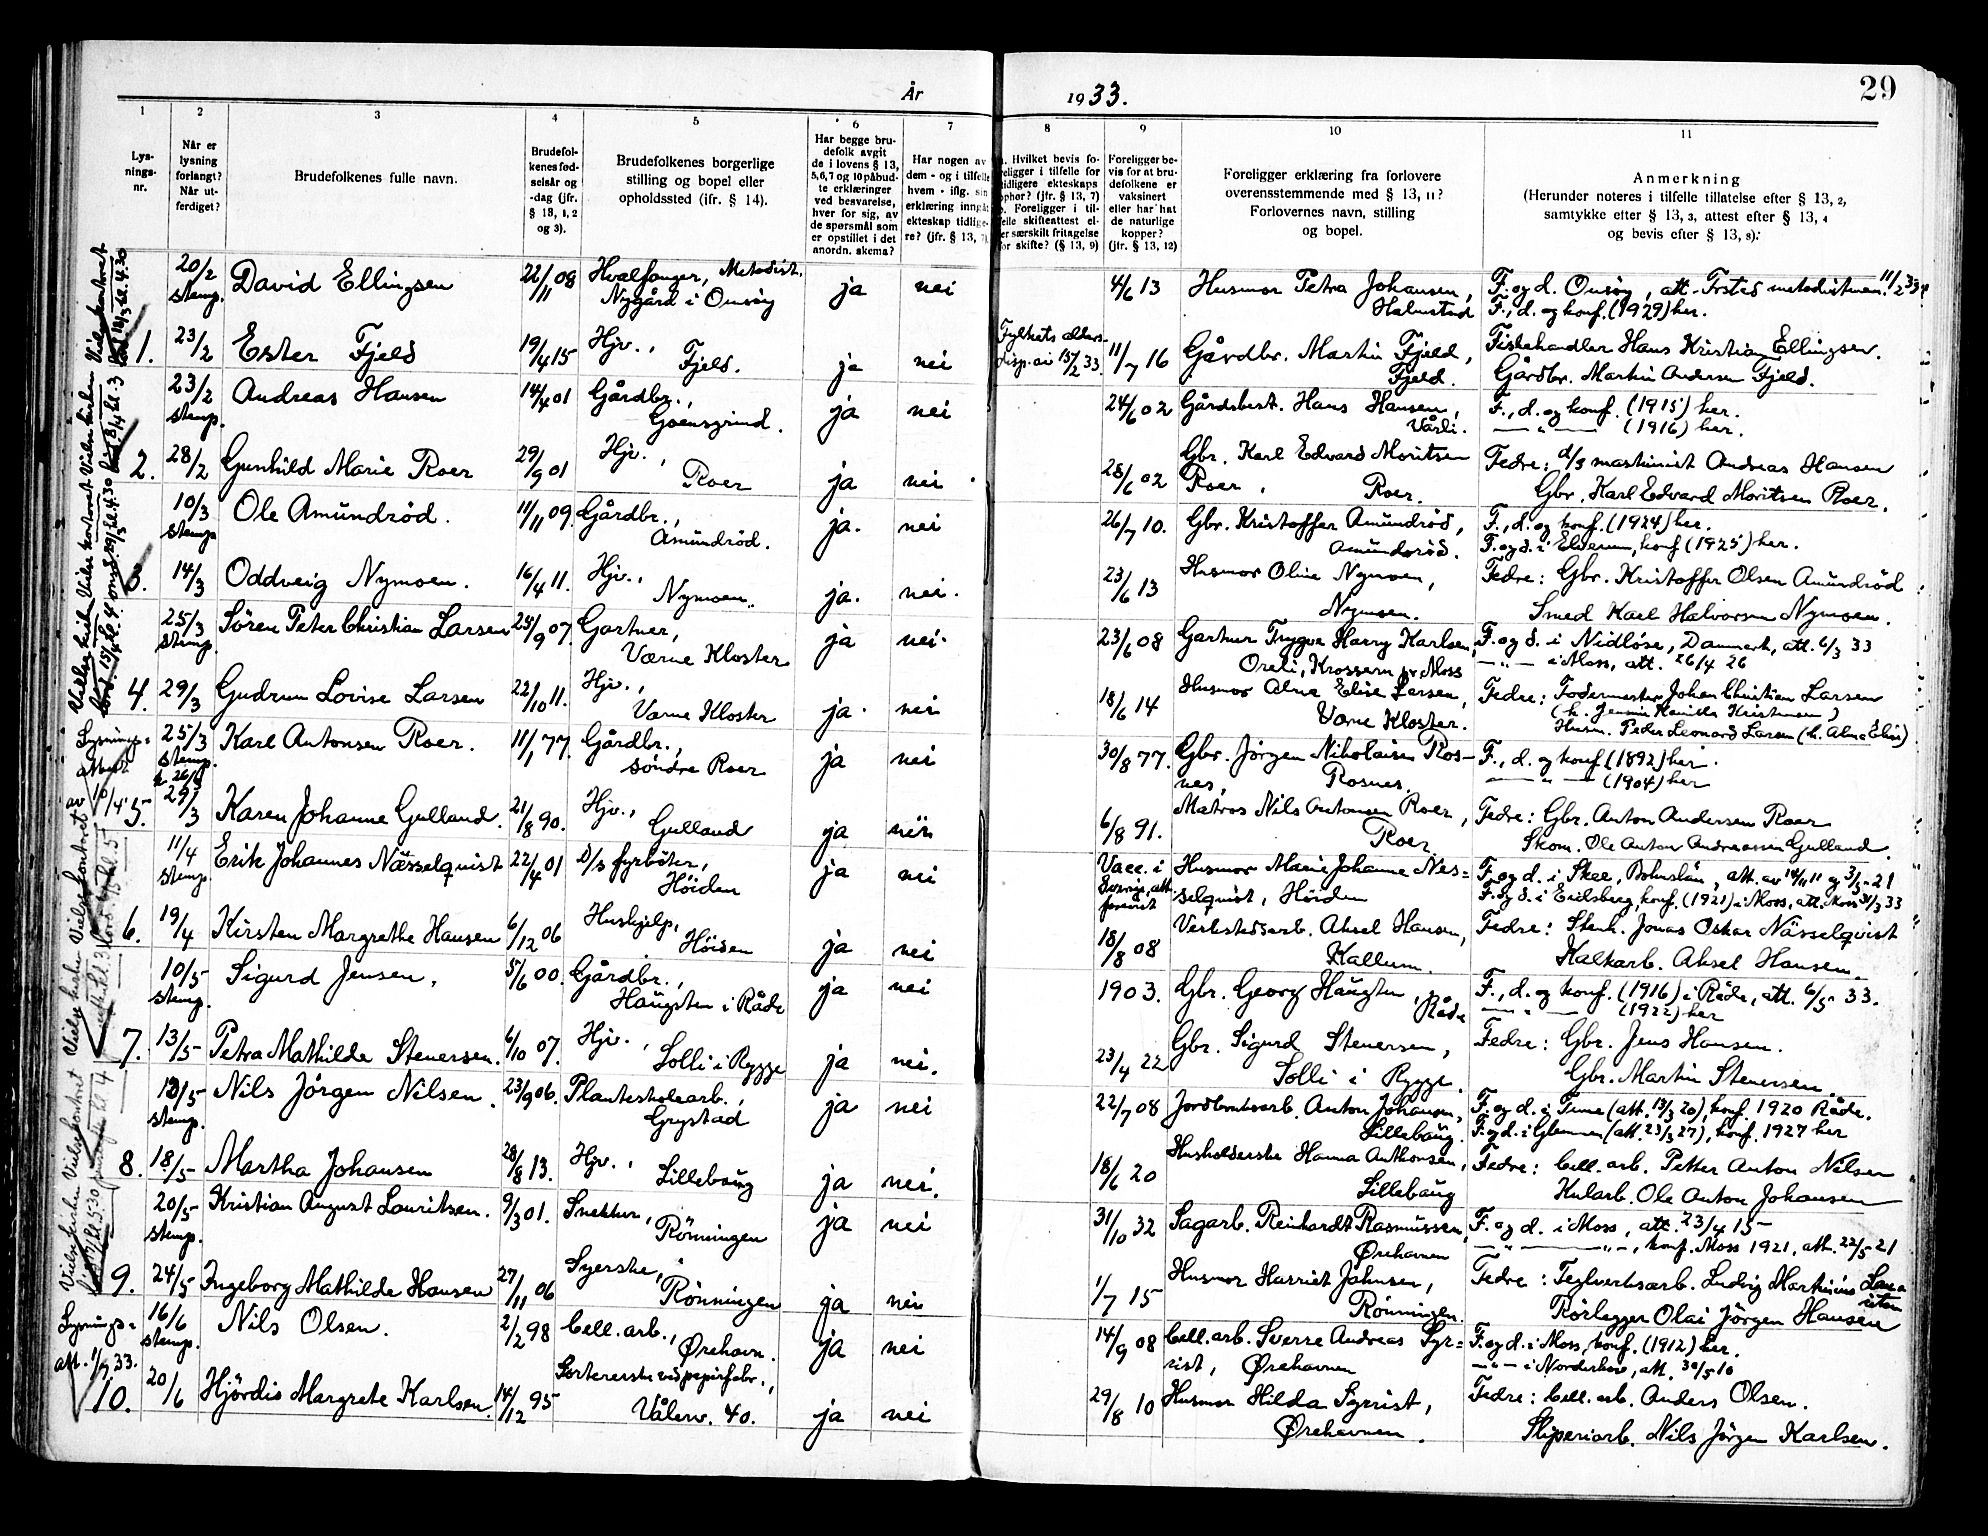 År 1933.
29
1 2 3 4 5 6 7 8 9 10 11
Lys-
nings-
nr.
Når er
lysning
forlangt?
Når ut-
ferdiget?
Brudefolkenes fulle navn.
Brudefol-
kenes fød-
selsår og
-dag (jfr.
§ 13, 1, 2
og 3).
Brudefolkenes borgerlige
stilling og bopel eller
opholdssted (ifr. § 14).
Har begge bru-
defolk avgit
de i lovens § 13,
5, 6, 7 og 10 påbud-
te erklæringer
ved besvarelse,
hver for sig, av
de spørsmål som
er opstillet i det
anordn. skema?
Har nogen av
dem - og i tilfelle
hvem - iflg. sin
erklæring inngåt
ekteskap tidlige-
re? (jfr. § 13, 7)
Hvilket bevis fo-
religger i tilfelle for
tidligere ekteskaps
ophør? (jfr. § 13, 7)
Foreligger i til-
felle skifteattest el-
ler særskilt fritagelse
for skifte? (§ 13, 9)
Foreligger be-
vis for at bru-
defolkene er
vaksinert
eller har hat
de naturlige
kopper?
(jfr. § 13, 12)
Foreligger erklæring fra forlovere
overensstemmende med § 13, 11?
Forlovernes navn, stilling
og bopel.
Anmerkning
(Herunder noteres i tilfelle tillatelse efter § 13, 2,
samtykke efter § 13, 3, attest efter § 13, 4
og bevis efter § 13, 8).
20/2 stemp. David Ellingsen 22/11 08 Hvalfanger, Metodist. Nygård i Onsøy ja nei 4/6 13 Husmor Petra Johansen, Halmstad F. og d. Onsøy, att.
F., d. og konf. (1929) her.
1. 23/2 Ester Fjeld 19/4 15 Hjv., Fjeld. ja nei Fylkets alders-disp. av 15/2 33 11/7 16 Gårdbr. Martin Fjeld, Fjeld. Fiskehandler Hans Kristian Ellingsen.
Gårdbr. Martin Andersen Fjeld.
23/2 stemp. Andreas Hansen 14/4 01 Gårdbr., Goensgrind. ja nei 24/6 02 Gårdsbest. Hans Hansen, Vårli. F., d. og konf. (1915) her.
— " — (1916) her.
2. 28/2 Gunhild Marie Roer 29/9 01 Hjv., Roer ja nei 28/6 02 Gbr. Karl Edvard Moritsen Roer, Roer. Fedre: d/s maskinist Andreas Hansen
Gbr. Karl Edvard Moritsen Roer.
10/3 stemp Ole Amundrød. 11/11 09. Gårdbr., Amundrød. ja. nei 26/7 10. Gbr. Kristoffer Amundrød, Amundrød. F., d. og konf. (1924) her.
F. og d. i Elverum, konf (1925) her.
3. 14/3 Oddveig Nymoen. 16/4 11. Hjv., Nymoen. ja. nei. 23/6 13 Husmor Oline Nymoen, Nymoen. Fedre: Gbr. Kristoffer Olsen Amundrød
Smed Karl Halvorsen Nymoen.
25/3 stemp. Søren Peter Christian Larsen 25/9 07. Gartner, Værne Kloster ja nei. 23/6 08 Gartner Trygve Harry Karlsen, Oreli, Krossern pr Moss F. og d. i Nidløse, Danmark, att. 6/3 33
— " — i Moss, att. 26/4 26
4. 29/3 Gudrun Lovise Larsen 22/10 11. Hjv., Værne Kloster ja. nei 18/6 14 Husmor Alma Elise Larsen, Værne Kloster. Fedre: Fodermester Johan Christian Larsen
Husm. Peder Leonard Larsen
25/3 stemp. Karl Antonsen Roer. 11/1 77. Gårdbr., søndre Roer ja nei 30/8 77. Gbr. Jørgen Nikolaisen Ros-nes, Rosnes. F., d. og konf (1892) her.
— " — (1904) her
5. 29/3 Karen Johanne Gulland. 21/8 90. Hjv., Gulland ja nei 6/8 91. Matros Nils Antonsen Roer, Roer Fedre: Gbr. Anton Andersen Roer
Skom. Ole Anton Andreassen Gulland.
11/4 stemp. Erik Johannes Nässelquist 22/4 01 D/s fyrbøter, Høiden ja nei Vacc. i Sverige, att. Husmor Marie Johanne Nes=selquist, Høiden F. og d. i Skee, Bohuslän, att. av 14/11 11 og 3/5-21
F. og d. i Eidsberg, konf. (1921) i Moss, att. Moss 31/3 33
6. 19/4 Kirsten Margrethe Hansen 6/12 06 Hushjelp, Høiden ja nei 18/8 08 Verkstedsarb. Aksel Hansen, Kallum. Fedre: Stenh. Jonas Oskar Nässelqvist
Kalkarb. Aksel Hansen.
10/5 stemp. Sigurd Jensen, 5/6 00. Gårdbr., Haugsten i Råde ja nei 1903. Gbr. Georg Haugsten, Råde F., d. og konf. (1916) i Råde, att. 6/5 33.
— " — (1922) her
7. 13/5 Petra Mathilde Stenersen. 6/10 07. Hjv., Solli i Rygge ja nei. 23/4 22 Gbr. Sigurd Stenersen, Solli i Rygge. Fedre: Gbr. Jens Hansen.
Gbr. Martin Stenersen.
13/5 stemp. Nils Jørgen Nilsen. 23/9 06. Planteskolearb., Grystad ja nei 22/7 08 Jordbruksarb. Anton Johansen, Lillebaug. F. og d. i Tune (att. 13/3 20), konf. 1920 Råde.
F. og d. i Glemmen (att. 23/3 27), konf. 1927 her
8. 18/5 Martha Johansen 28/8 13. Hjv., Lillebaug ja nei. 18/6 20 Husholderske Hanna Anthonsen, Lillebaug Fedre: Cell. arb. Petter Anton Nilsen
Kularb. Ole Anton Johansen
20/5 stemp. Kristian August Lauritsen. 9/3 01. Snekker, Rønningen ja nei 31/10 32 Sagarb. Reinhardt Rasmussen, Ørehavnen F. og d. i Moss, att. 23/4 15
— " — " —, konf. Moss 1921, att. 22/5-21
9. 24/5 Ingeborg Mathilde Hansen 27/11 06 Syerske, Rønningen ja nei 1/7 15 Husmor Harriet Johnsen, Rønningen. Fedre: Teglverksarb. Ludvig Martinius Lauritsen
Rørlegger Olai Jørgen Hansen
16/6 stemp. Nils Olsen. 2/2 98 Cell. arb., Ørehavn. ja nei 14/9 08 Cell. arb. Sverre Andreas Syr=rist, Ørehavnen F. og d. i Moss, konf. (1912) her.
— " — i Norderhov, att. 30/5 10
Lysnings=att. 1/7 33.
10. 20/6 Hjørdis Margrete Karlsen. 14/12 95 Sortererske ved papirfabr., Vålerv. 40. ja nei 29/8 10 Husmor Hilda Syrrist, Ørehavnen. Fedre: Cell. arb. Anders Olsen.
Sliperiarb. Nils Jørgen Karlsen.